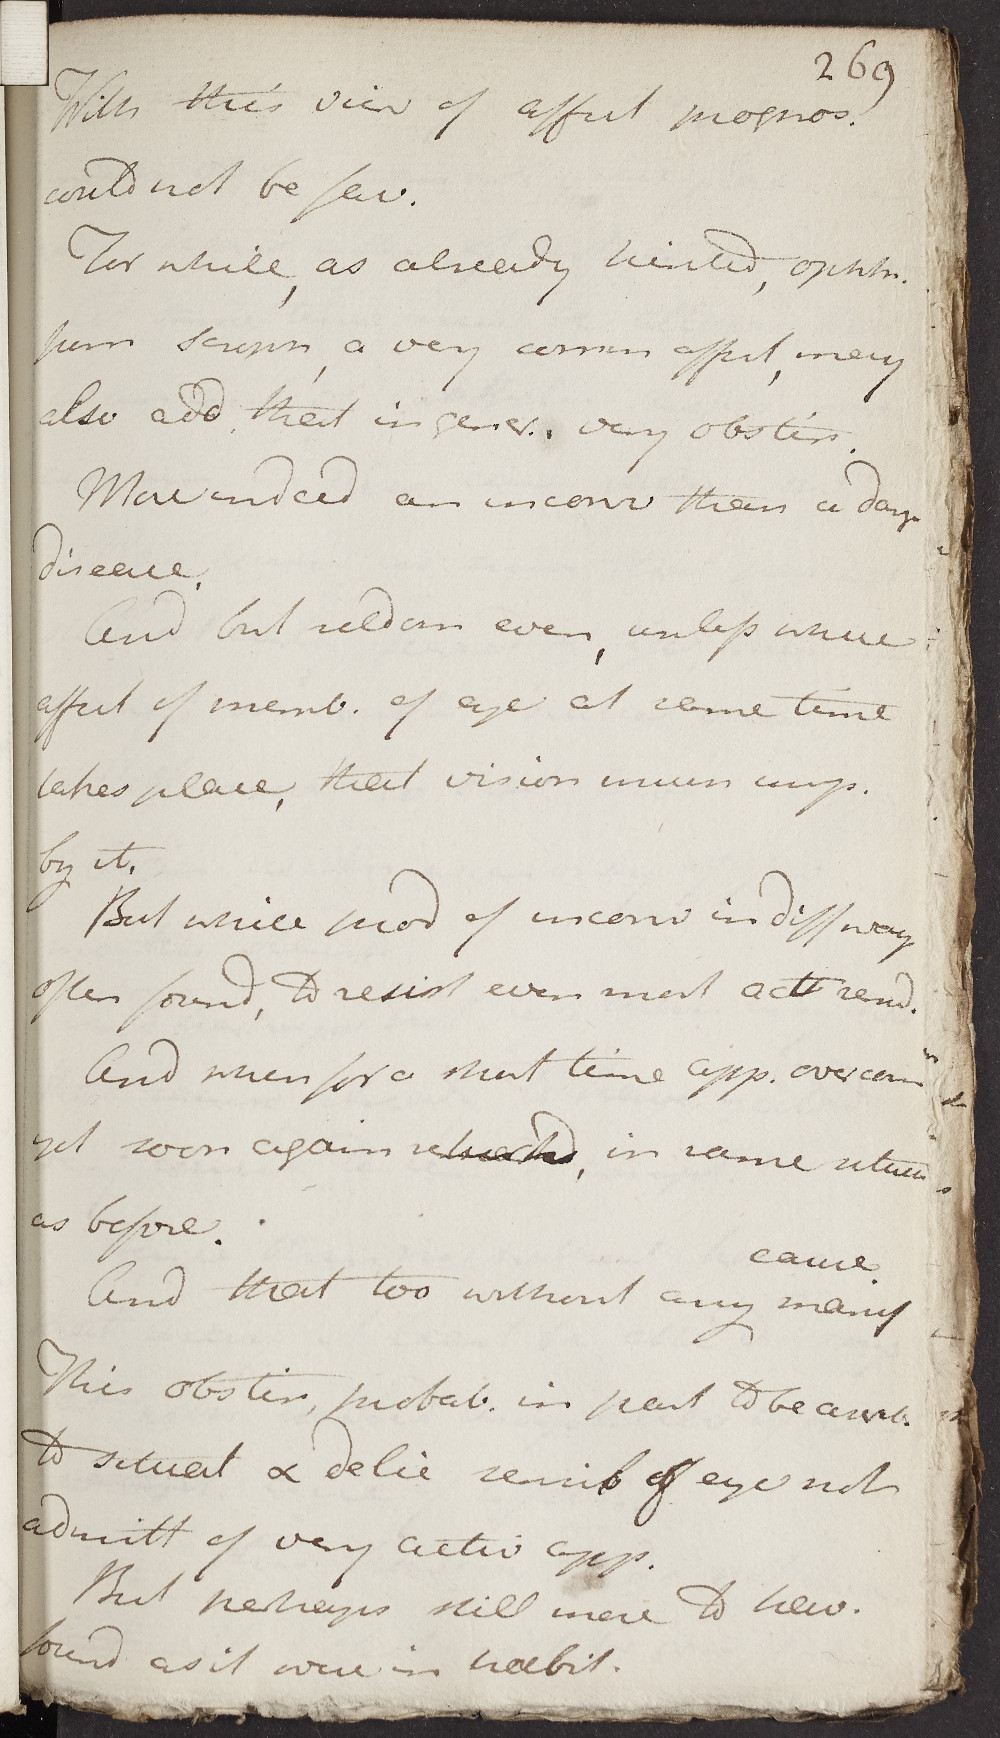 269
With this view of affect prognos.
could not be fav.
For while, as already hinted, ophth.
from scroph, a very common affect, may
also add, that in gener. very obstin.
More indeed an inconv than a dang
disease.
And but seldom even, unless where
affect of memb. of eye at same time
takes place, that vision much imp.
by it.
But while prod of inconv in diff way
often found, to resist even most act remd.
And when for a short time app. overcom
yet soon again in same situa
as before.
cause.
And that too without any manif
This obstin, probab. in part to be ascrib.
to situat & delic sensib of eye not
admitt of very activ app.
But perhaps still more to hav.
found as it were in habit.